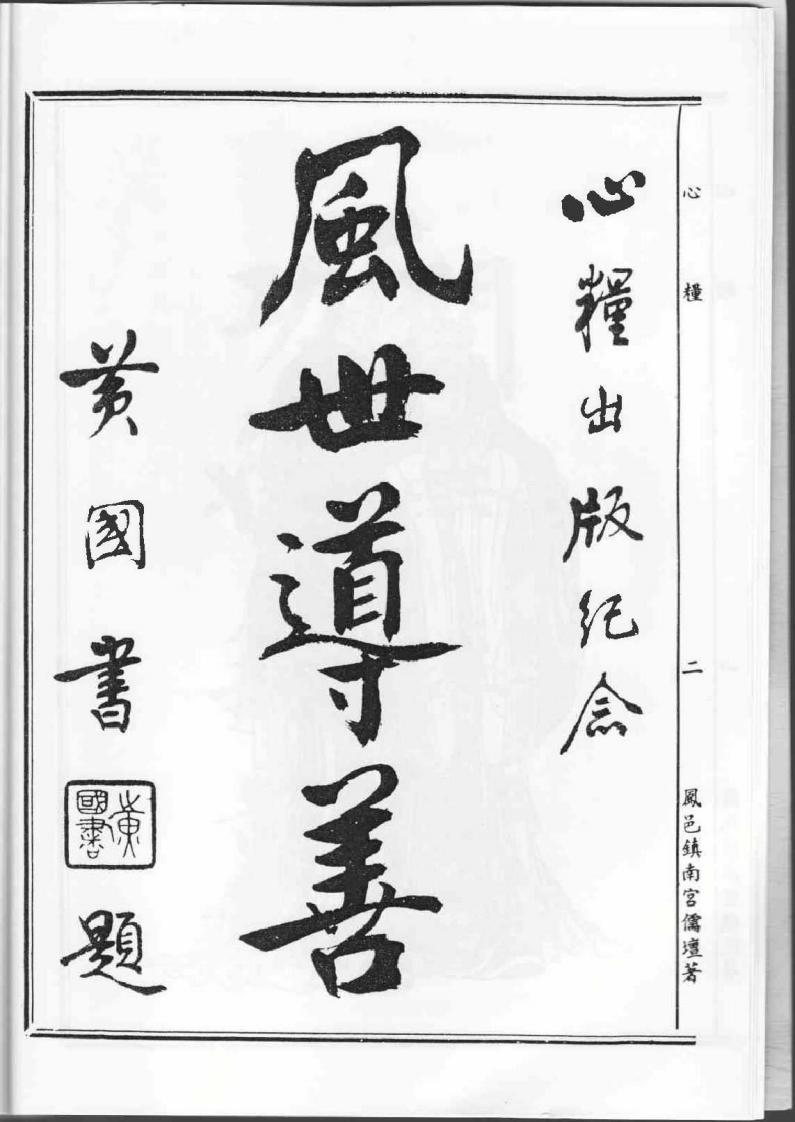 心糧
二
鳳邑鎮南宮儒壇著
心糧出版紀念
風世導善
黃國書
黃國書
題